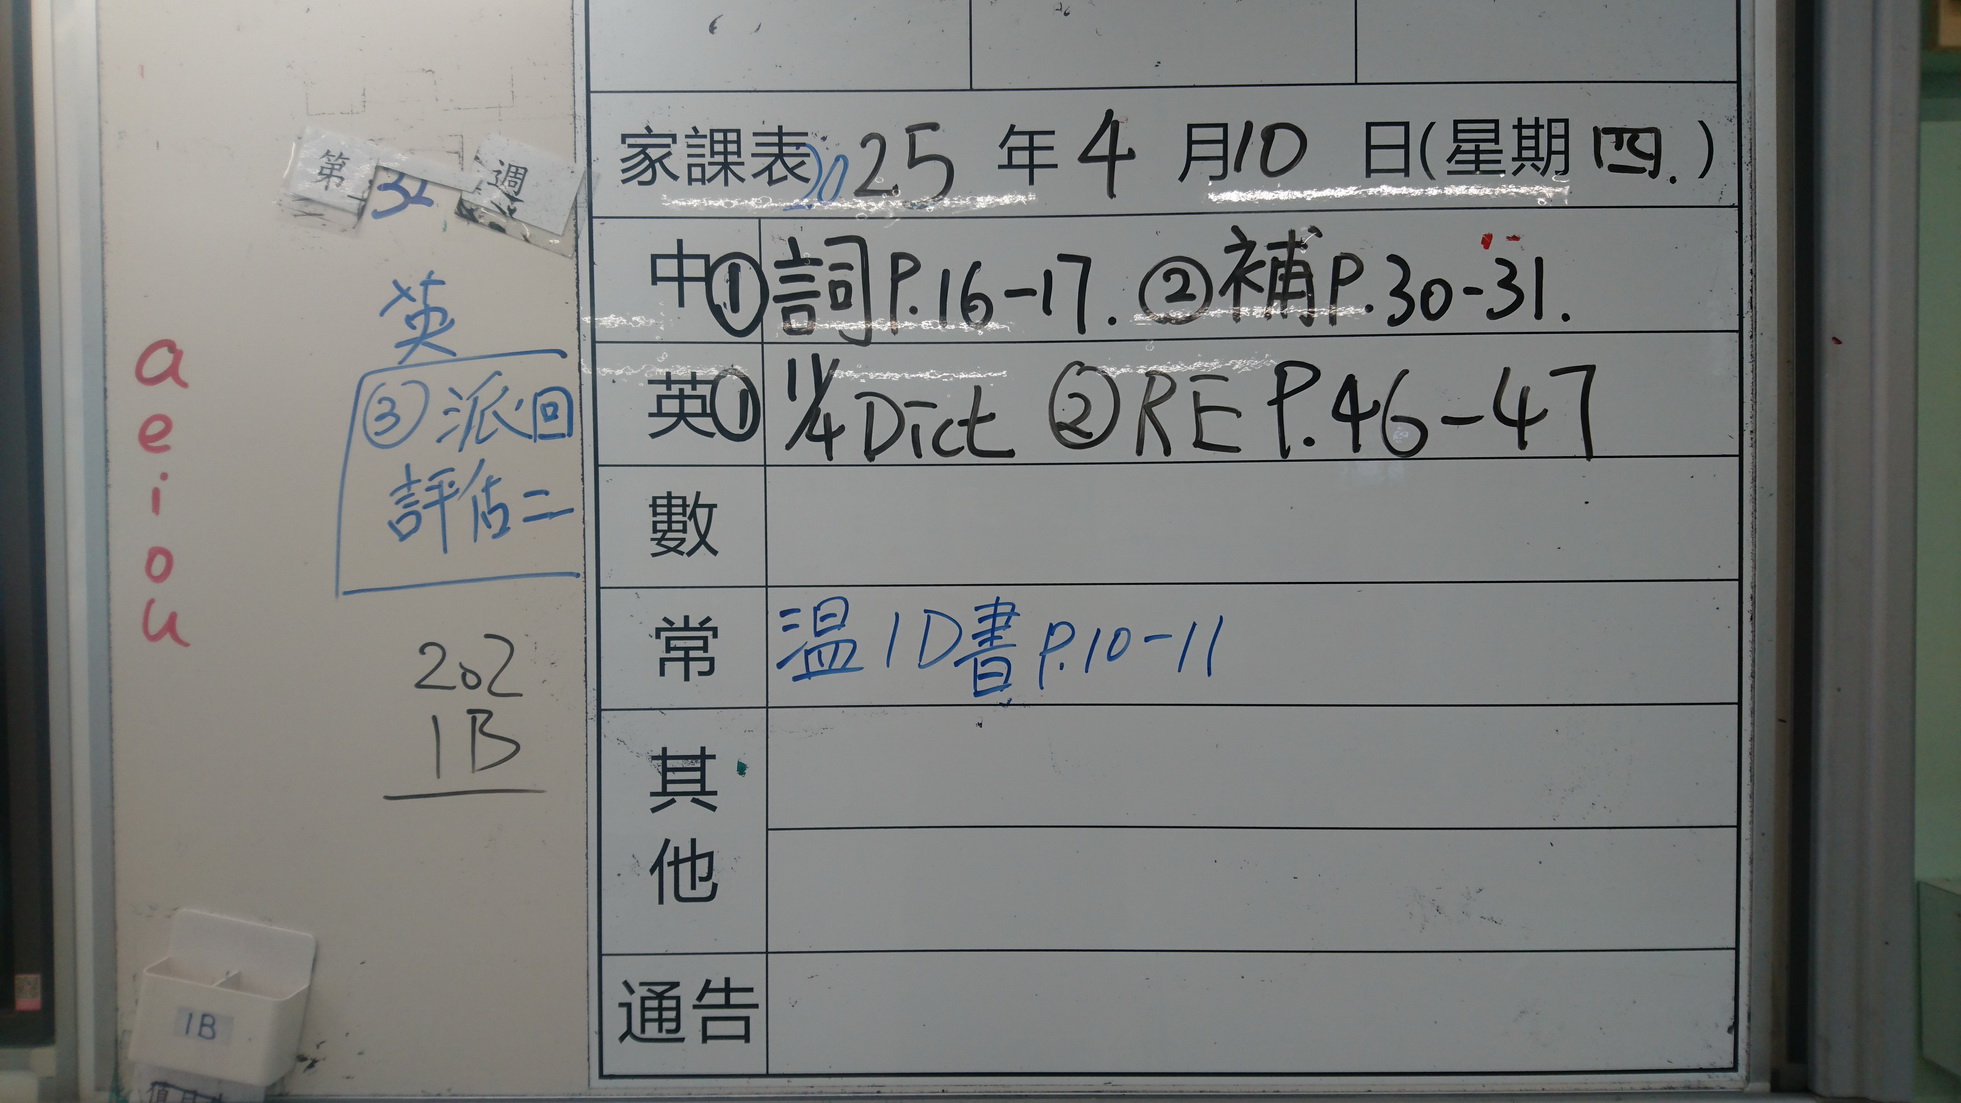 第 32 週
英
③派回
評估二
a
e
i
o
u
202
1B
1B
家課表 2025 年 4 月 10 日(星期 四.)
中 ①詞P.16-17. ②補P.30-31.
英 ①11/4 Dict ②RE P.46-47
數
常 温1D書P.10-11
其他
通告